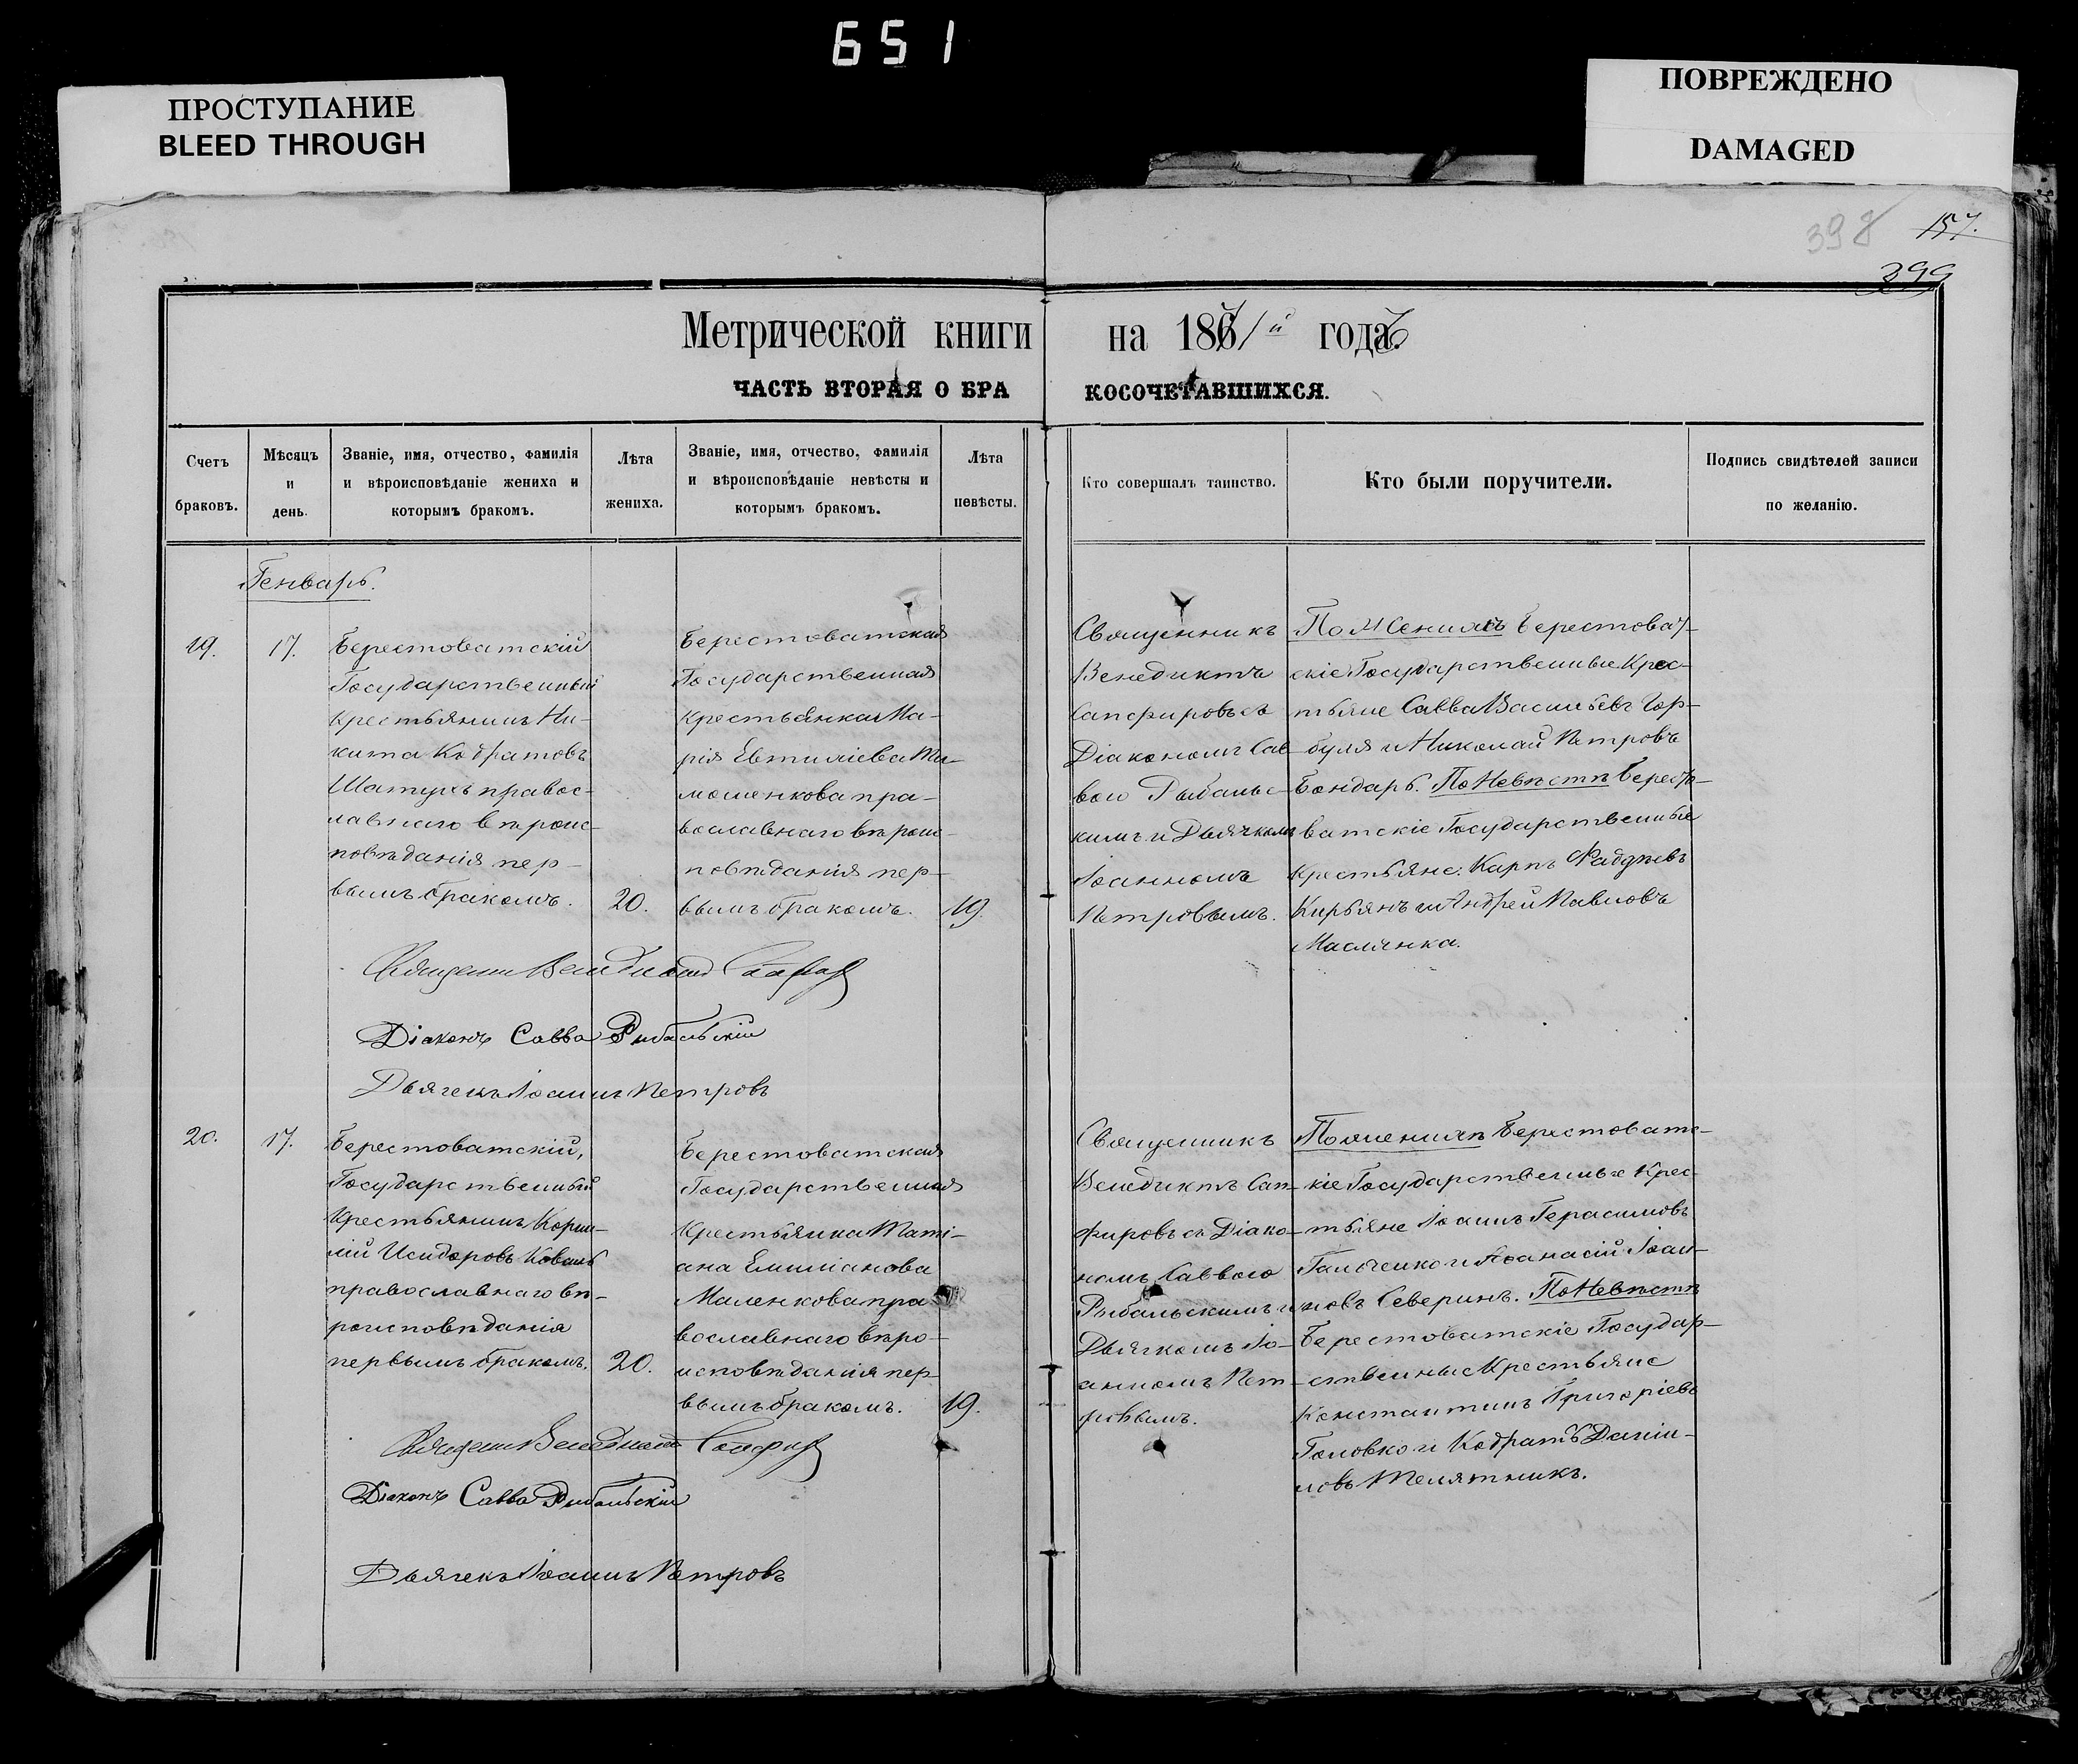 651
ПРОСТУПАНИЕ
BLEED THROUGH
ПОВРЕЖДЕНО
DAMAGED
398 157.
399
Метрической книги на 1871й годъ.
ЧАСТЬ ВТОРАЯ О БРАКОСОЧЕТАВШИХСЯ.
Счетъ
браковъ.
Мѣсяцъ
и
день.
Званіе, имя, отчество, фамилія
и вѣроисповѣданіе жениха и
которымъ бракомъ.
Лѣта
жениха.
Званіе, имя, отчество, фамилія
и вѣроисповѣданіе невѣсты и
которымъ бракомъ.
Лѣта
невѣсты.
Кто совершалъ таинство.
Кто были поручители.
Подпись свидѣтелей записи
по желанію.
Генварь.
19.
17.
Берестоватскій
Государственный
Крестьянинъ Ни-
кита Кодратовъ
правос-
лавнаго вѣроис-
повѣданія пер-
вымъ бракомъ.
20.
Берестоватская
Государственная
Крестьянка Ма-
рія
пра-
вославнаго вѣроис-
повѣданія пер-
вымъ бракомъ.
19.
Священникъ
Венедиктъ
Сапфировъ съ
Діакономъ Сав-
вою Рыбальс-
кимъ и Дьячкомъ
Іоанномъ
Петровымъ.
По Женихѣ Берестоват-
скіе Государственные Крес-
тьяне Савва Васильевъ Гор-
буля и Николай Петровъ
Бондарь. По Невѣстѣ Бересто-
ватскіе Государственные
Крестьяне: Карпъ Фаддѣевъ
Кирьянъ и Андрей Павловъ
Маслянка.
Священникъ Венедиктъ Сапфировъ
Діаконъ Савва Рыбальскій
Дьячекъ Іоаннъ Петровъ
20.
17.
Берестоватскій,
Государственный
Крестьянинъ Корни-
лій Исидоровъ Коваль
православнаго вѣ-
роисповѣданія
первымъ бракомъ.
20.
Берестоватская
Государственная
Крестьянка Таті-
ана Емиліанова
Маленкова пра-
вославнаго вѣро-
исповѣданія пер-
вымъ бракомъ.
19.
Священникъ
Венедиктъ Сап-
фировъ съ Діако-
номъ Саввою
Рыбальскимъ и
Дьячкомъ Іо-
анномъ Пет-
ровымъ.
По женихѣ Берестоватс-
кіе Государственные Крес-
тьяне Іоаннъ Герасимовъ
и Аѳанасій Іоан-
новъ Северинъ. По Невѣстѣ
Берестоватскіе Государ-
ственные Крестьяне
Константинъ Григоріевъ
Головко и Кодратъ Даніи-
ловъ Телятникъ.
Священникъ Венедиктъ Сапфировъ
Діаконъ Савва Рыбальскій
Дьячекъ Іоаннъ Петровъ